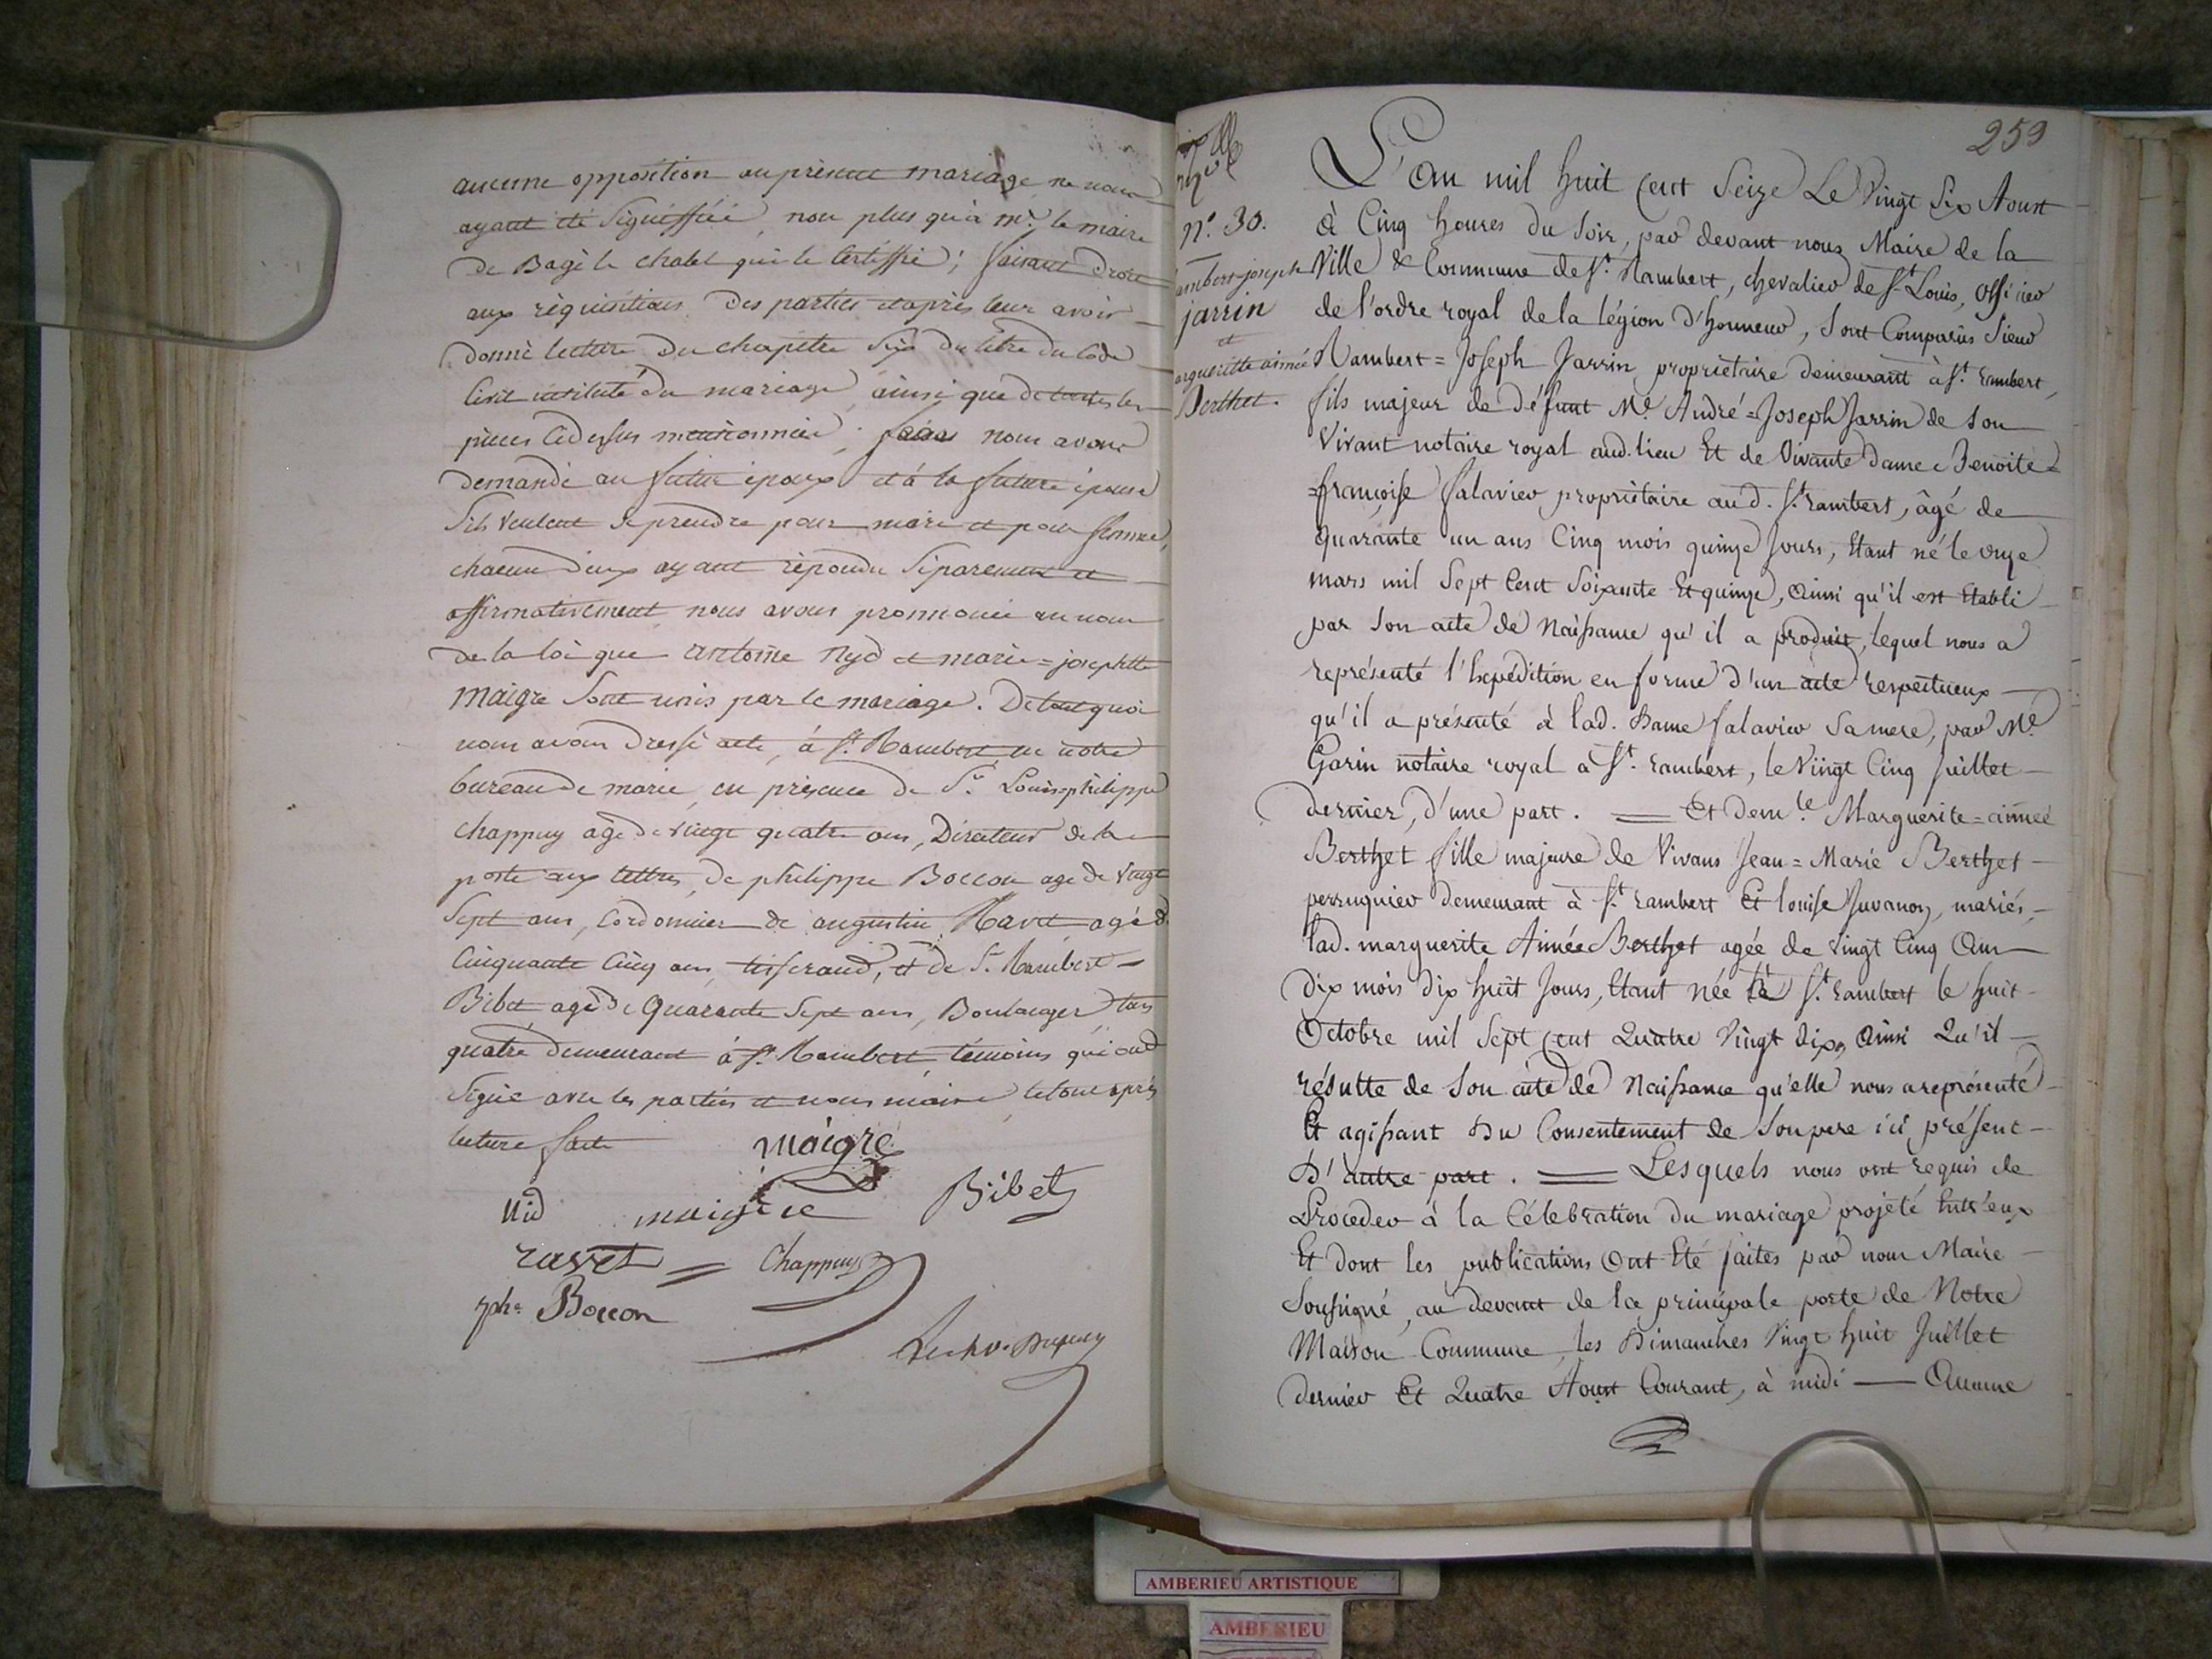 aucune opposition au présent mariage ne nous
ayant été Signéffiéé, non plus qu'à mr. le maire
de Bagé le chatel qui le Certiffie; faisant droit
aux réquisitions des parties et après leur avoir
donné lecture du chapitre Six du titre du Code
Civil intitulé du mariage, ainsi que de toutes les
pièces Cidessus mentionnées, nous avons
demandé au futur époux et à la future épouse
S'ils veulent se prendre pour mari et pour femme,
chacun d'eux ayant répondu Séparement et
affirmativement, nous avons prononcé au nom
de la loi que antoine Nyd et marie=josephte
maigre Sont unis par le mariage. De tout quoi
nous avons dressé acte, à St. Rambert, en notre
bureau de mairie, en présence de Sr. Louis=philippe
chappuy agé de vingt quatre ans, Directeur de la
poste aux lettres, de philippe Boccon agé de vingt
Sept ans, Cordonnier de augustin Ravet agé de
Cinquante Cinq ans, tisserand, et de Sr. Rambert
Bibet agé de Quarante Sept ans, Boulanger tous
quatre demeurant à St. Rambert, témoins qui ont
Signé avec les parties et nous maire, le tout après
lecture faite
maigre
Nid maigre Bibet
ravet = Chappuy
phe Boccon
259
L'an mil huit Cent Seize Le Vingt Six Aoust
n°. 30.
à Cinq heures du Soir, par devant nous Maire de la
ambert=joseph
jarrin
et
arguerite aimée
Berthet.
Ville & Commune de St. Rambert, chevalier de St. Louis, officier
de l'ordre royal de la légion d'honneur, Sont Comparus Sieur
Rambert=Joseph Jarrin propriétaire demeurant à St. rambert,
fils majeur de défunt Me. André=Joseph Jarrin de Son
Vivant notaire royal aud. lieu Et de Vivante Dame Benoite=
=françoise falavier, propriétaire aud. St. rambert, âgé de
quarante un ans Cinq mois quinze Jours, Etant né le onze
mars mil Sept Cent Soixante Et quinze, Ainsi qu'il est Etabli
par Son acte de Naissance qu'il a produit, lequel nous a
représenté l'Expédition en forme d'un acte respectueux
qu'il a présenté à lad. Dame falavier Sa mere, par Me.
Garin notaire royal à St. rambert, le Vingt Cinq juillet
dernier, d'une part. = Et demlle. Marguerite=aimée
Berthet fille majeure de Vivans Jean=Marie Berthet
perruquier demeurant à St. rambert Et louise Juvanon, mariés,
lad. marguerite Aimée Berthet agée de vingt Cinq Ans
dix mois dix huit Jours, Etant née à St. rambert le huit
Octobre mil Sept Cent Quatre Vingt dix, Ainsi Qu'il
résulte de Son acte de Naissance qu'elle nous a représenté
Et agissant Du Consentement de Son pere ici présent
D'autre part. = Lesquels nous ont requis de
Proceder à la Célebration du mariage projeté Entr'eux
Et dont les publications Ont Eté faites par nous Maire
Soussigné, au devant de la principale porte de Notre
Maison Commune, les Dimanches Vingt huit Juillet
dernier Et Quatre Aoust Courant, à midi — Aucune
AMBERIEU ARTISTIQUE
AMBERIEU